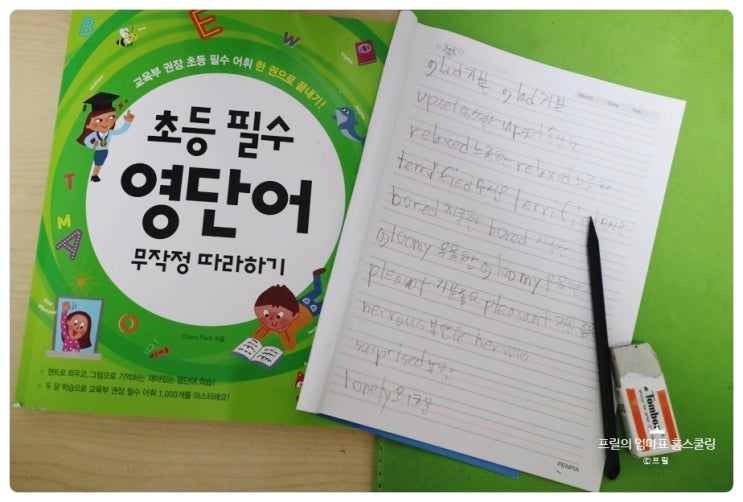 B
E
W
T
M
A
O
교육부 권장 초등 필수 어휘 한 권으로 끝내기!
초등 필수
영단어
무작정 따라하기
Claire Park 지음
챈트로 외우고, 그림으로 기억하는 재미있는 영단어 학습!
두 달 학습으로 교육부 권장 필수 어휘 1,000개를 마스터해요!
Month Date Day
glad 기쁜 glad 기쁜
upset 속상한 upset
relaxed 느긋한 relaxed 느긋한
terrified 무서운 terrified 무서운
bored 지루한 bored 지루한
gloomy 우울한 gloomy 우울한
pleasant 기분좋은 pleasant 기분 좋은
nervous 불안한 nervous
surprised 놀란
lonely 외로운
PENPIA
Tombow
프릴의 엄마표 홈스쿨링
©프릴